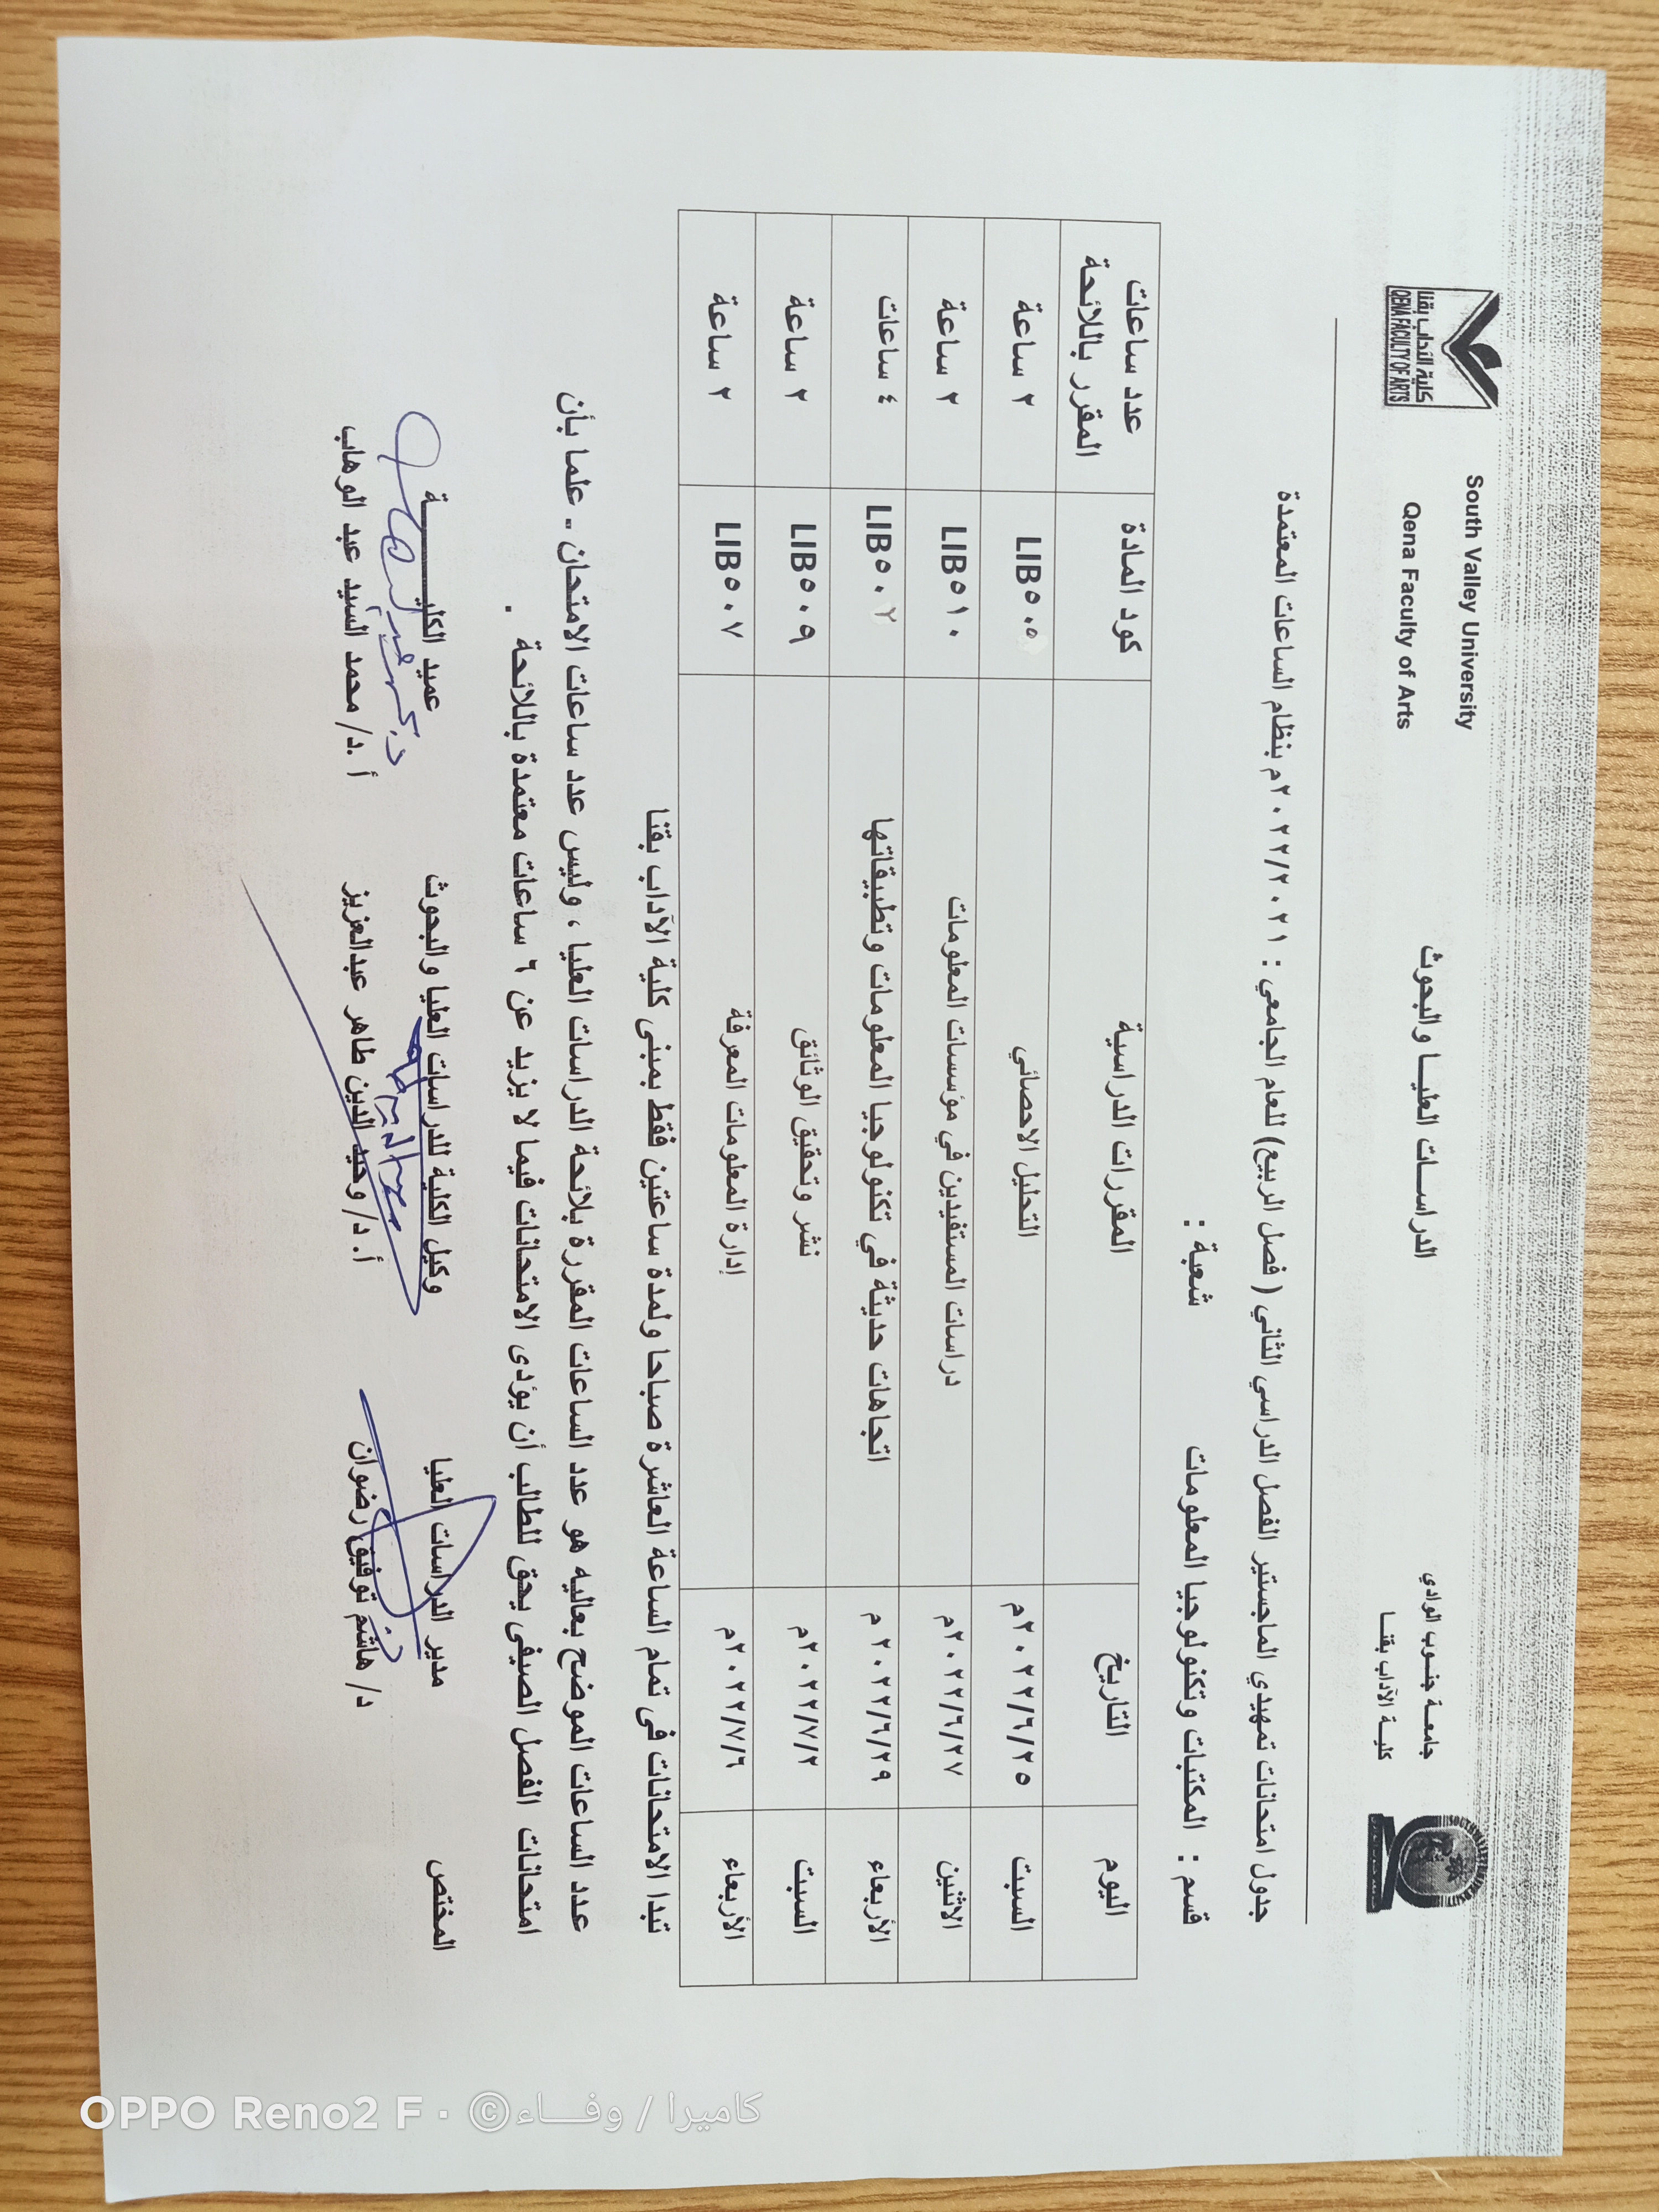 جامعـة جنـوب الوادي
كليــة الآداب بقنــا
الدراســات العليــا والبحوث
South Valley University
Qena Faculty of Arts
كلية الآداب بقنا
QENA FACULTY OF ARTS
جدول امتحانات تمهيدي الماجستير الفصل الدراسي الثاني ( فصل الربيع) للعام الجامعي : ٢٠٢٢/٢٠٢١م بنظام الساعات المعتمدة
قسم : المكتبات وتكنولوجيا المعلومات شعبة :
اليوم التاريخ المقررات الدراسية كود المادة عدد ساعات المقرر باللائحة
السبت ٢٠٢٢/٦/٢٥م التحليل الاحصائي LIB٥٠٥ ٢ ساعة
الاثنين ٢٠٢٢/٦/٢٧م دراسات المستفيدين في مؤسسات المعلومات LIB٥١٠ ٢ ساعة
الأربعاء ٢٠٢٢/٦/٢٩ م اتجاهات حديثة في تكنولوجيا المعلومات وتطبيقاتها LIB٥٠٢ ٤ ساعات
السبت ٢٠٢٢/٧/٢م نشر وتحقيق الوثائق LIB٥٠٩ ٢ ساعة
الأربعاء ٢٠٢٢/٧/٦م إدارة المعلومات المعرفة LIB٥٠٧ ٢ ساعة
تبدا الامتحانات فى تمام الساعة العاشرة صباحا ولمدة ساعتين فقط بمبنى كلية الآداب بقنا
عدد الساعات الموضح بعاليه هو عدد الساعات المقررة بلائحة الدراسات العليا ، وليس عدد ساعات الامتحان .. علما بأن
امتحانات الفصل الصيفى يحق للطالب أن يؤدى الامتحانات فيما لا يزيد عن ٦ ساعات معتمدة باللائحة .
المختص مدير الدراسات العليا وكيل الكلية للدراسات العليا والبحوث عميد الكليــــــــة
د/ هاشم توفيق رضوان أ. د/ وحيد الدين طاهر عبدالعزيز أ .د/ محمد السيد عبد الوهاب
OPPO Reno2 F · ©كاميرا / وفــــاء